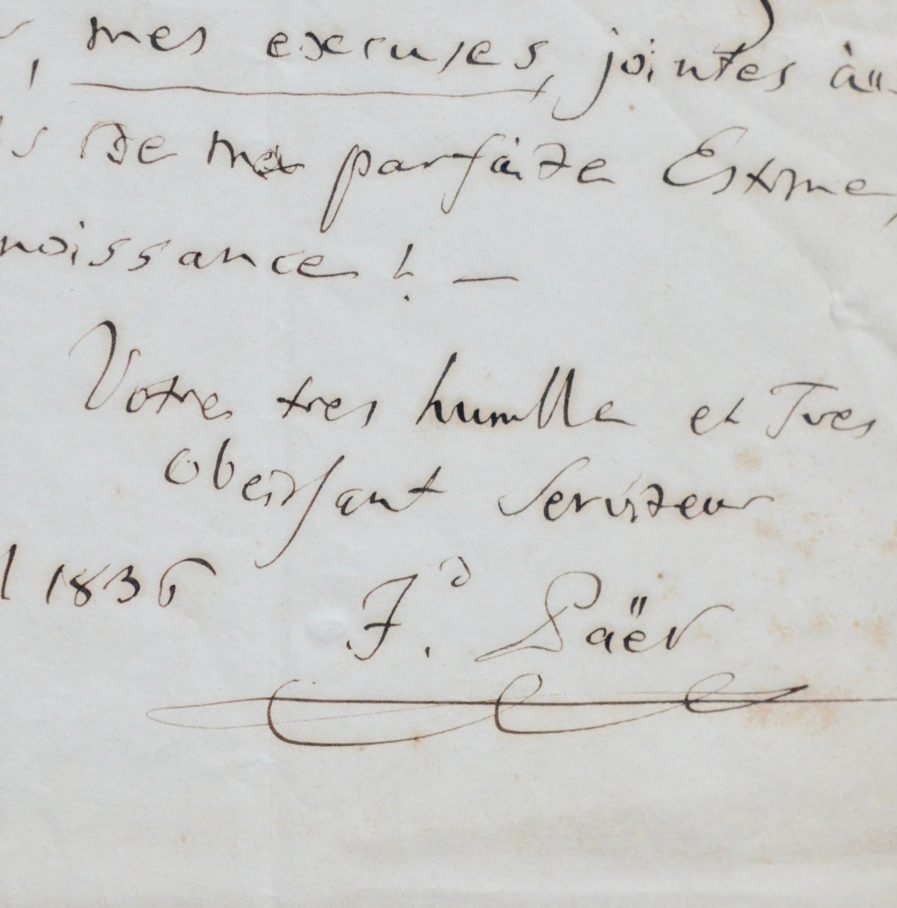 , mes excuses, jointes aü
s de ma parfaite Estime,
noissance ! —
Votre tres humble et Tres
obeissant Serviteur
l 1836
F.d Paër